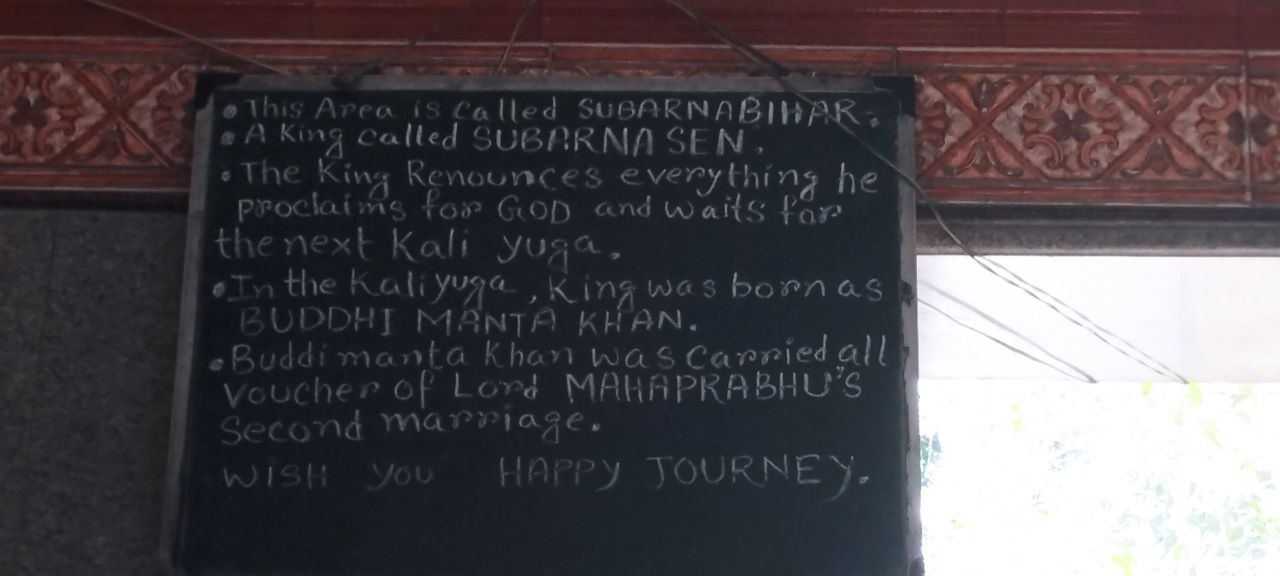 • This Area is called SUBARNABIHAR.
• A King called SUBARNA SEN.
• The King Renounces everything he
proclaims for GOD and waits for
the next Kali yuga.
• In the Kaliyuga, King was born as
BUDDHI MANTA KHAN.
• Buddimanta Khan was carried all
voucher of Lord MAHAPRABHU'S
Second marriage.
WISH YOU HAPPY JOURNEY.